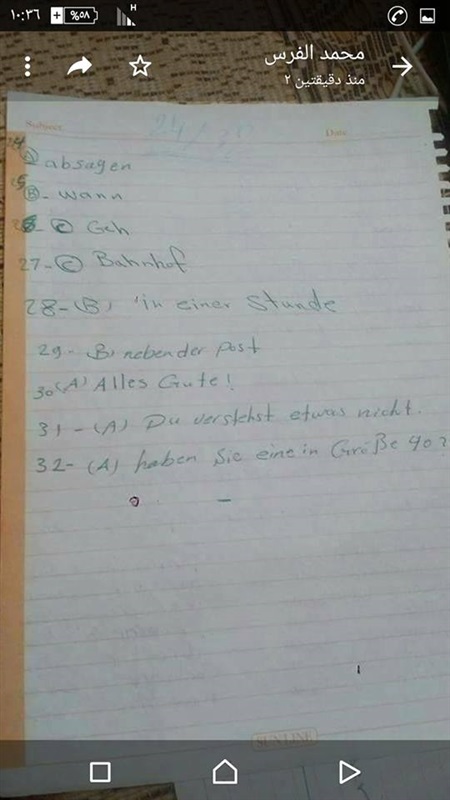 ١٠:٣٦ %٥٨ H
محمد الفرس
منذ دقيقتين ٢
Subject 24/ Date
24 A absagen
25 B - wann
26 C Geh
27 - C Bahnhof
28 - (B) in einer Stunde
29 - B) neben der post
30 (A) Alles Gute!
31 - (A) Du verstehst etwas nicht.
32 - (A) haben Sie eine in Größe 40?
SUN LINE